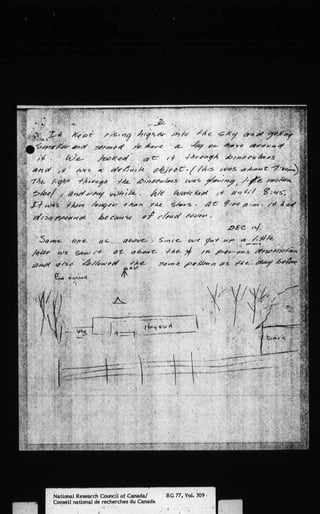 2
It kept rising higher into the sky and getting
smaller and seemed to have a fog or haze around
it. We looked at it through binoculars
and it was a definite object. (this was about 7
The light through the binoculars was glowing, like
steel, and very white. We watched it until 8:45,
It was there longer than the stars. at 9:00 a.m. it had
disappeared because of cloud cover.
DEC 14.
Same one as above. Since we got up a little
later we saw it at about the in previous description
and also followed the same pattern as the day before
barn
National Research Council of Canada/ RG 77, Vol. 309
Conseil national de recherches du Canada